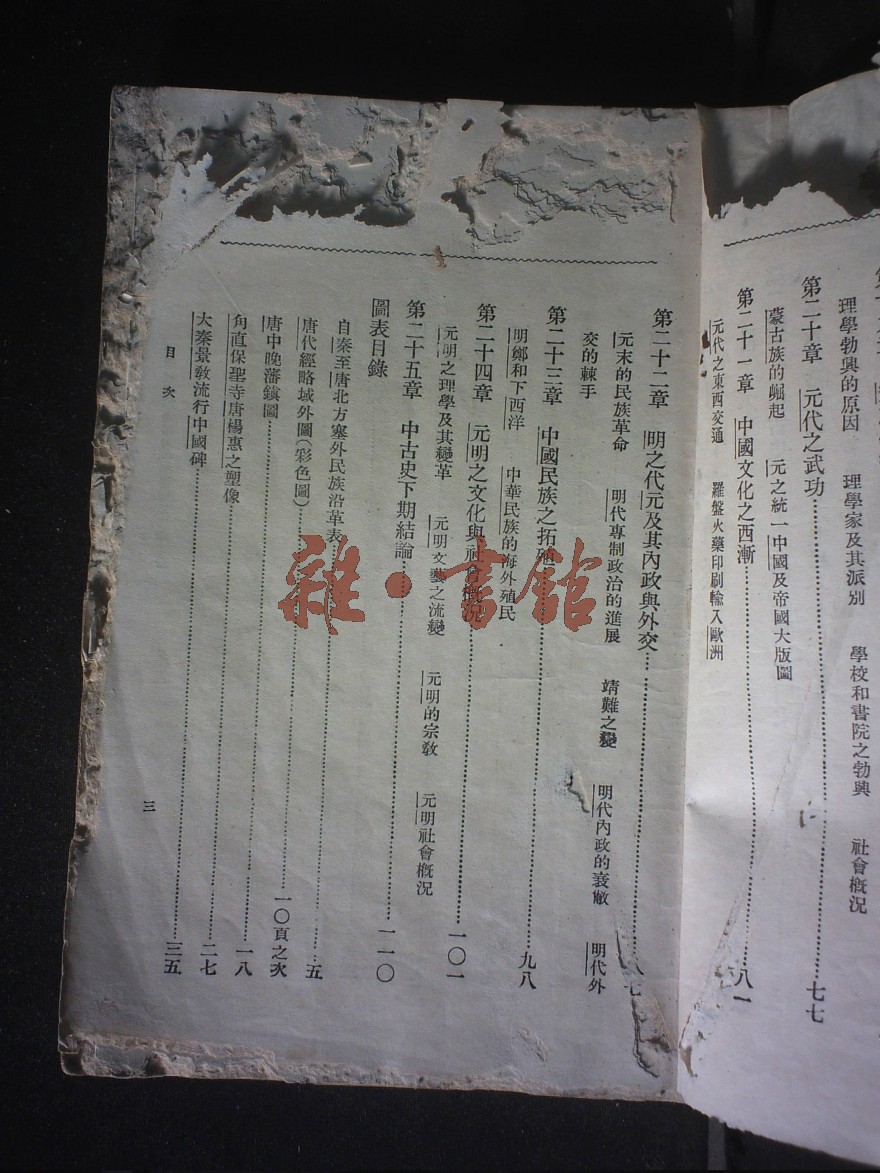 理學勃興的原因　理學家及其派別　學校和書院之勃興　社會概況
第二十章　元代之武功…………七七
蒙古族的崛起　元之統一中國及帝國大版圖
第二十一章　中國文化之西漸…………八一
元代之東西交通　羅盤火藥印刷輸入歐洲
第二十二章　明之代元及其內政與外交…………八七
元末的民族革命　明代專制政治的進展　靖難之變　明代內政的衰敝　明代外
交的棘手
第二十三章　中國民族之拓殖…………九八
明鄭和下西洋　中華民族的海外殖民
第二十四章　元明之文化與社會概況…………一〇一
元明之理學及其變革　元明文藝之流變　元明的宗教　元明社會概況
第二十五章　中古史下期結論…………一一〇
圖表目錄
自秦至唐北方塞外民族沿革表…………五
唐代經略域外圖（彩色圖）…………一〇頁之次
唐中晚藩鎮圖…………一八
角直保聖寺唐楊惠之塑像…………二七
大秦景教流行中國碑…………三五
目次
三
雜·書館